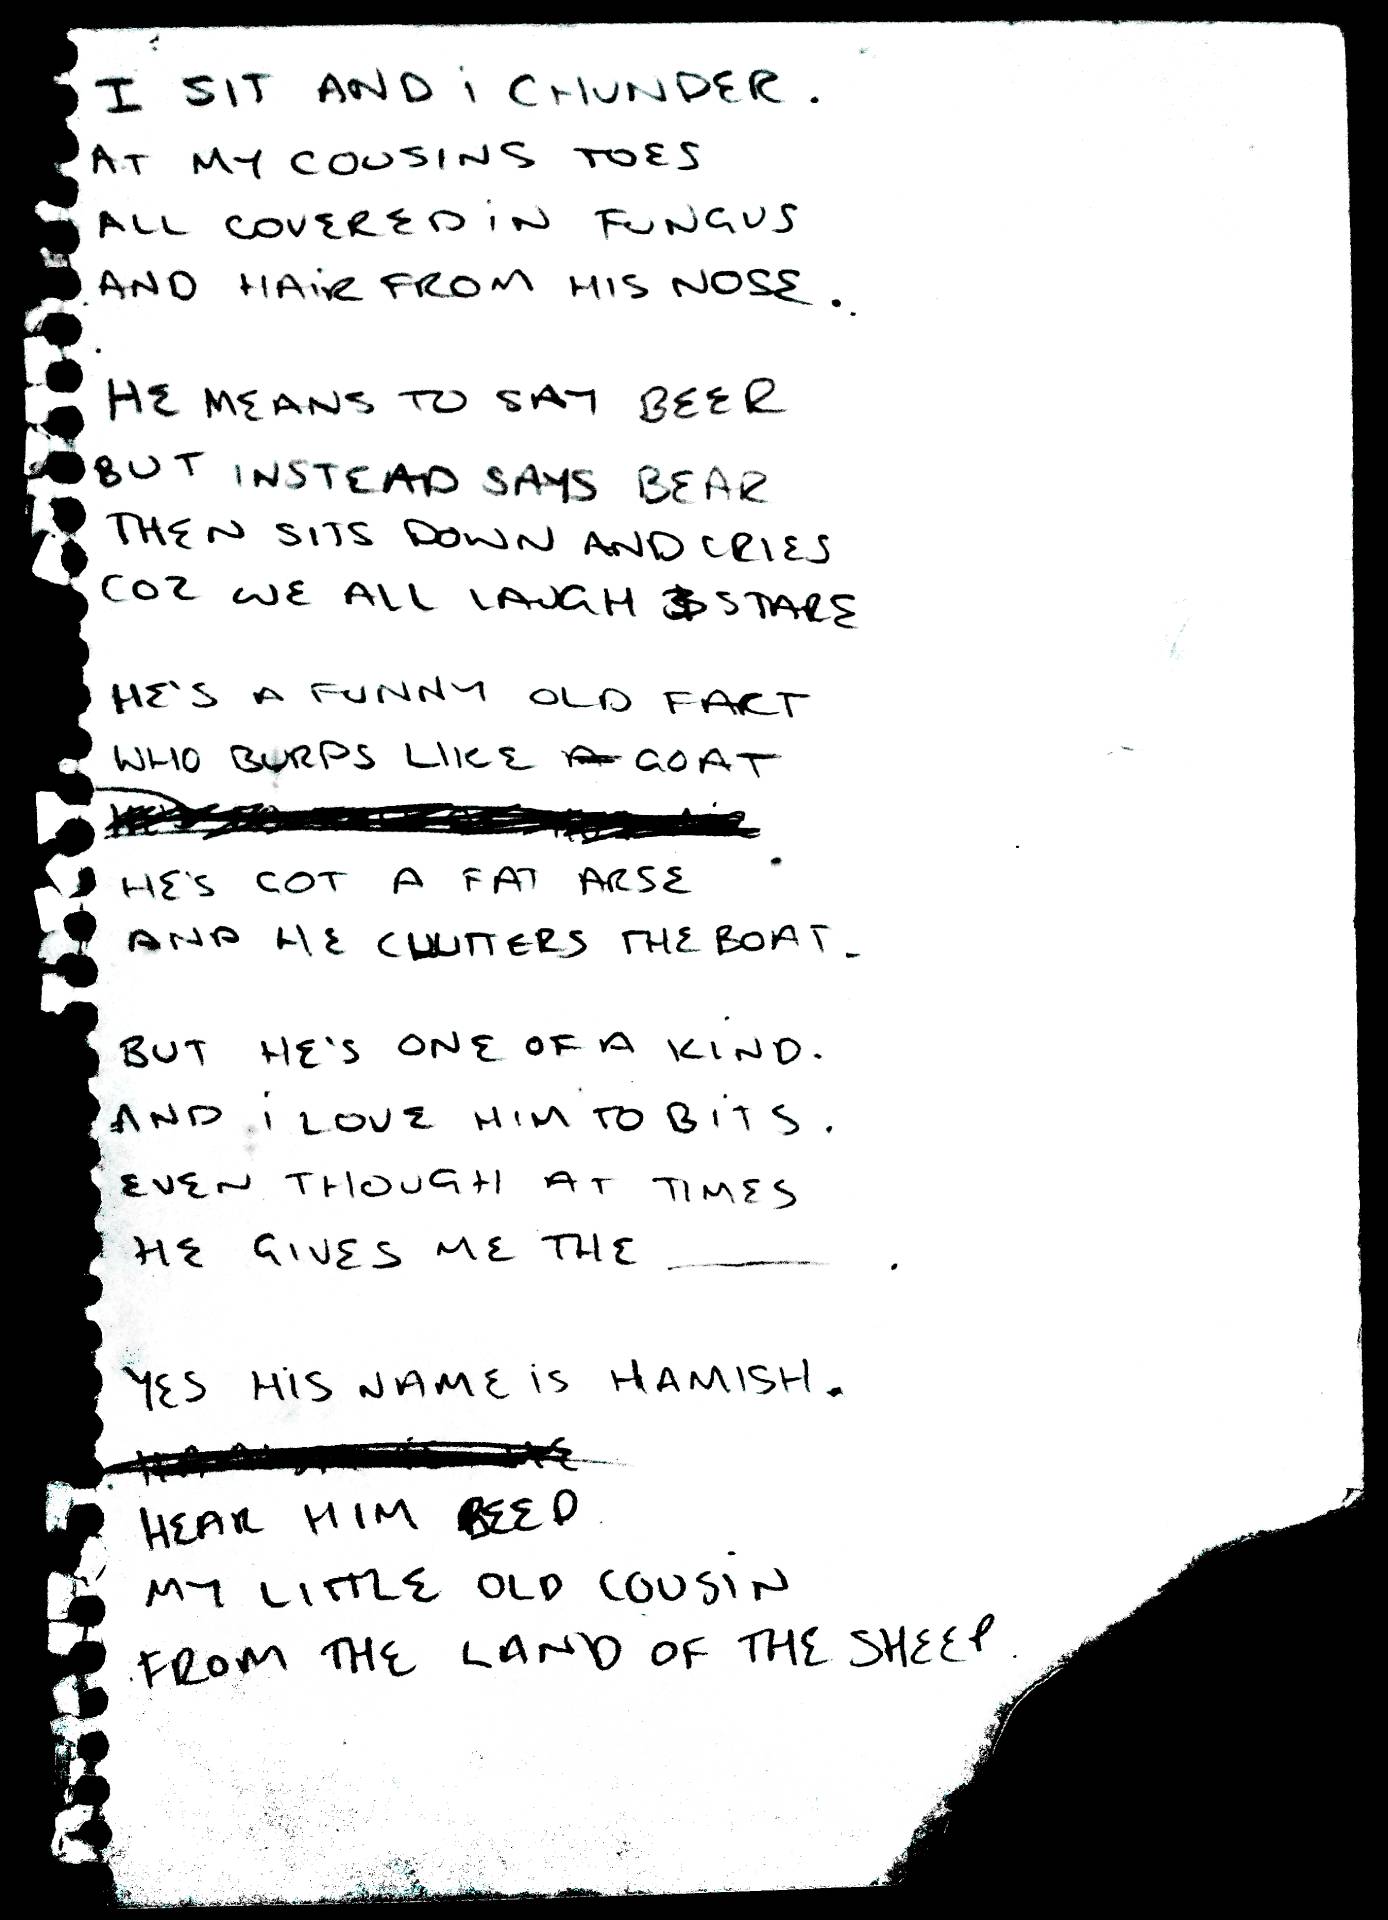 I SIT AND i CHUNDER.
AT MY COUSINS TOES
ALL COVERED iN FUNGUS
AND HAiR FROM HIS NOSE.
HE MEANS TO SAY BEER
BUT INSTEAD SAYS BEAR
THEN SITS DOWN AND CRIES
COZ WE ALL LAUGH & STARE
HE'S A FUNNY OLD FART
WHO BURPS LIKE A GOAT
HE'S GOT A FAT ARSE
AND HE CLUTTERS THE BOAT.
BUT HE'S ONE OF A KiND.
AND i LOVE HIM TO BiTS.
EVEN THOUGH AT TIMES
HE GIVES ME THE ______ .
YES HiS NAME iS HAMISH.
HEAR HIM BEED
MY LITTLE OLD COUSiN
FROM THE LAND OF THE SHEEP.